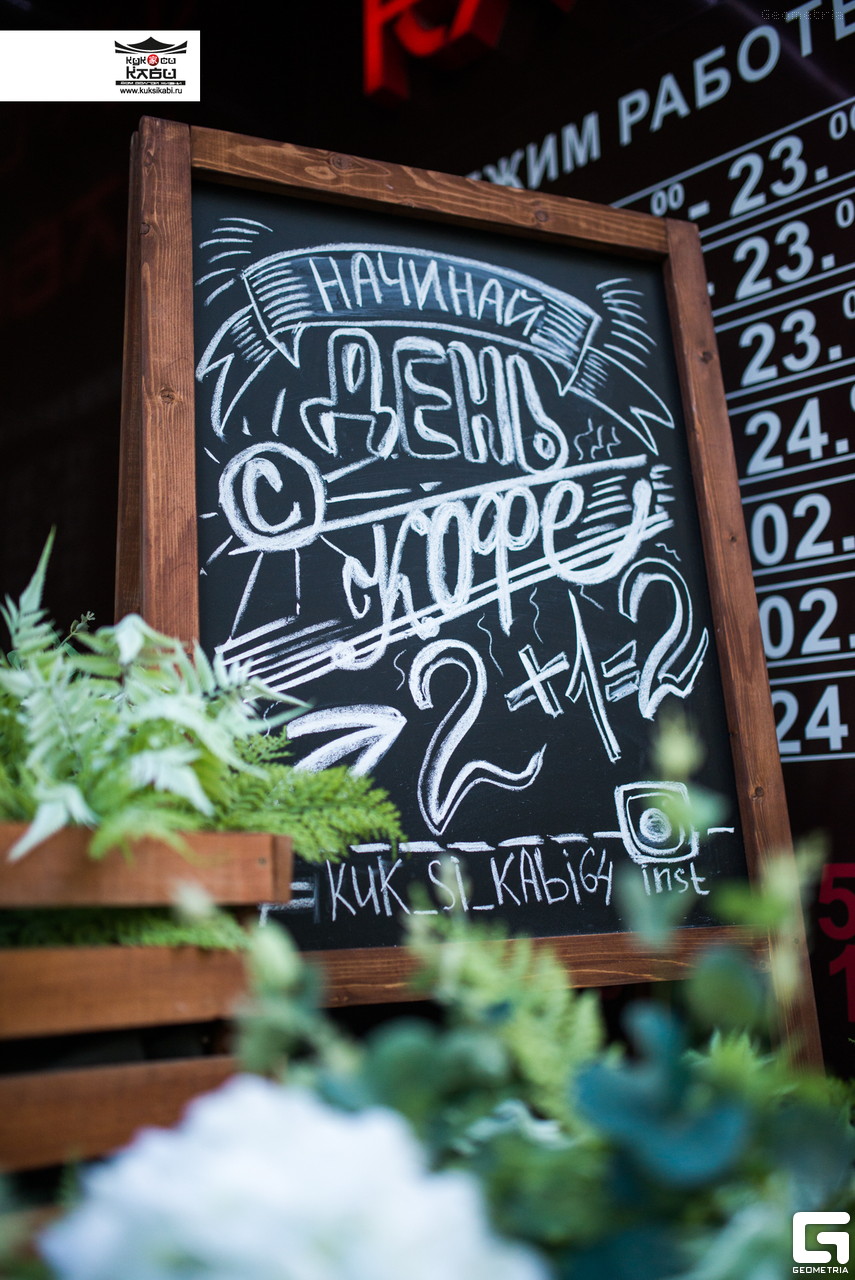 Geometria
КУК СИ
КАБИ
www.kuksikabi.ru
ЖИМ РАБОТЫ
00 - 23. 00
23. 0
23.
24.
02.
02.
24
НАЧИНАЙ
ДЕНЬ
С
КОФЕ
2+1=2
KUK_Si_KAbi64 inst
GEOMETRIA